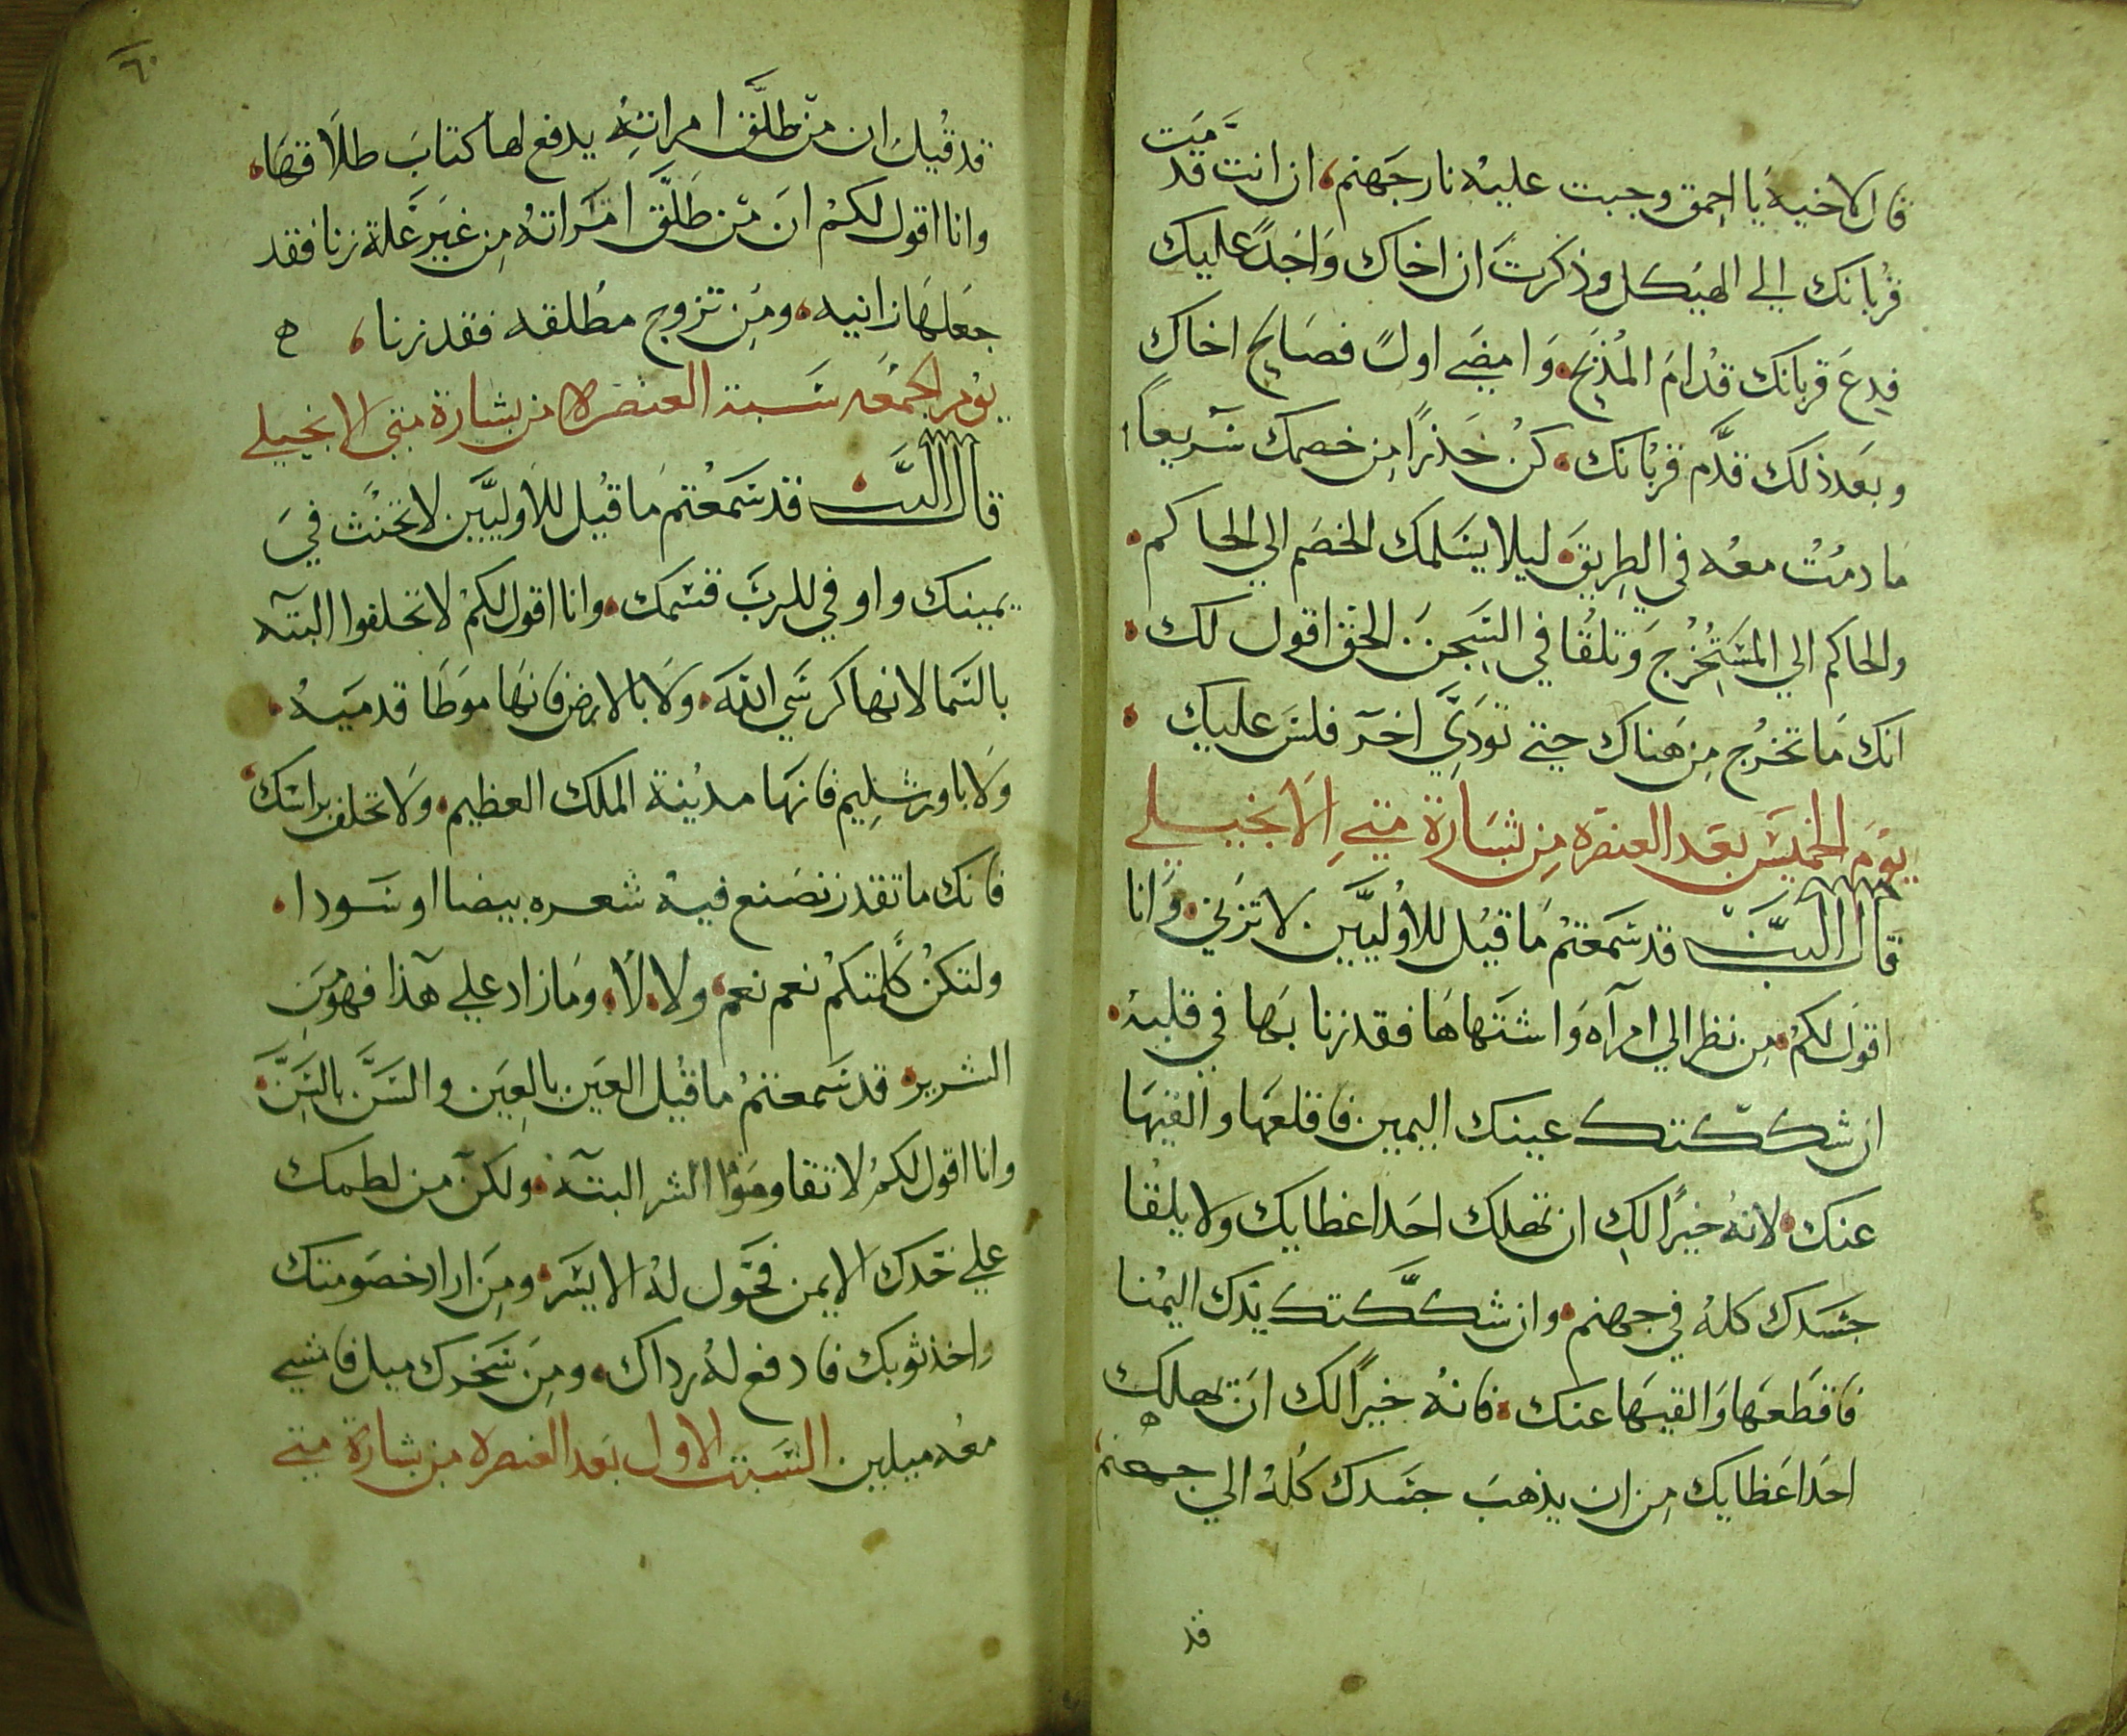 قال لاخيه يا احمق وجبت عليه نار جهنم، ان انت قدَّمت
قربانك الي الهيكل وذكرت ان اخاك واجدًا عليك
فدع قربانك قدام المذبح. وامضي اولً فصالح اخاك
وبعد ذلك قدَّم قربانك. كن حذرًا من خصمك سريعاً
ما دمت معه في الطريق. ليلا يسلمك الخصم الي الحاكم.
والحاكم الي المستخرج وتلقا في السجن الحق اقول لك.
انك ما تخرج من هناك حتي تودي اخر فلس عليك.
يوم الخميس بعد العنصره من بشارة متي الانجيلي
قال الربّ قد سمعتم ما قيل للاوليين لا تزني. وانا
اقول لكم. من نظر الي امرآه واشتهاها فقد زنا بها في قلبه.
ان شككتك عينك اليمين فاقلعها والقيها
عنك. لانه خيرًا لك ان تهلك احد اعظايك ولا يلقا
جسدك كله في جهنم. وان شككتك يدك اليمنا
فاقطعها والقيها عنك. فانه خيرًا لك ان تهلك
احد اعظايك من ان يذهب جسدك كله الي جهنم،
قد
٦٠
قد قيل ان من طلَّق امراته يدفع لها كتاب طلاقها.
وانا اقول لكم ان من طلَّق امراته من غير علة زنا فقد
جعلها زانيه. ومن تزوج مطلقه فقد زنا، ه
يوم الجمعه سبة العنصره من بشارة متي الانجيلي
قال الربّ قد سمعتم ما قيل للاوليين لا تحنث في
يمينك واوفي للرب قسمك. وانا اقول لكم لا تحلفوا البتّه
بالسما لانها كرسي اللّه. ولا بالارض فانها موطا قدميه.
ولا باورشليم فانها مدينة الملك العظيم. ولا تحلف براسك
فانك ما تقدر تصنع فيه شعره بيضا او سودا.
ولتكن كلمتكم نعم نعم، ولا. لا. وما زاد علي هذا فهو من
الشرير. قد سمعتم ما قيل العين بالعين والسنَّ بالسنَّ.
وانا اقول لكم لا تقاوموا الشر البتّه. ولكن من لطمك
علي خدك الايمن فحوّل له الايسر. ومن اراد خصومتك
واخذ ثوبك فادفع له رداك. ومن سخرك ميل فامشي
معه ميلين السبت الاول بعد العنصره من بشارة متي